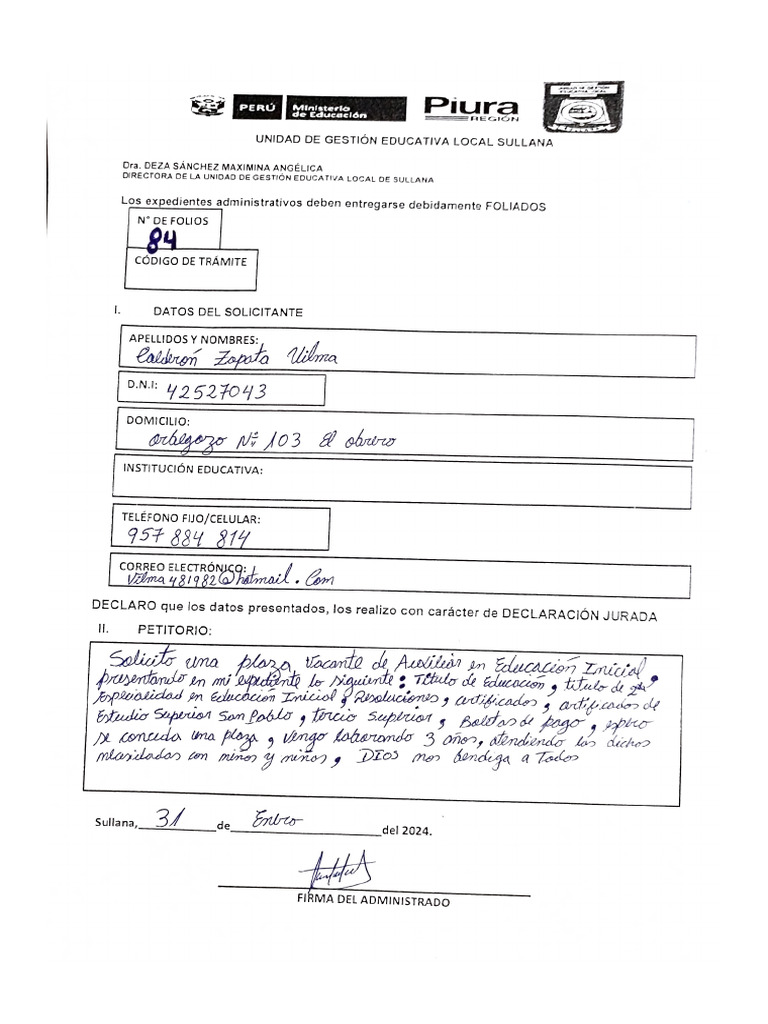 PERÚ
Ministerio
de Educación
Piura
REGIÓN
UNIDAD DE GESTIÓN EDUCATIVA LOCAL SULLANA
Dra. DEZA SÁNCHEZ MAXIMINA ANGÉLICA
DIRECTORA DE LA UNIDAD DE GESTIÓN EDUCATIVA LOCAL DE SULLANA
Los expedientes administrativos deben entregarse debidamente FOLIADOS
N° DE FOLIOS
84
CÓDIGO DE TRÁMITE
I. DATOS DEL SOLICITANTE
APELLIDOS Y NOMBRES:
Calderón Zapata Vilma
D.N.I: 42527043
DOMICILIO:
orbegozo Nº 103 El obrero
INSTITUCIÓN EDUCATIVA:
TELÉFONO FIJO/CELULAR:
957 884 814
CORREO ELECTRÓNICO:
Vilma481982@hotmail.com
DECLARO que los datos presentados, los realizo con carácter de DECLARACIÓN JURADA
II. PETITORIO:
Solicito una plaza vacante de Auxiliar en Educación Inicial,
presentando en mi expediente lo siguiente: Título de Educación, título de 2da
Especialidad en Educación Inicial, Resoluciones, certificados, artificados de
Estudio Superior San Pablo, tercio superior, Boletas de pago, espero
se conceda una plaza, vengo laborando 3 años, atendiendo las dichas
necesidades con niños y niñas, DIOS nos bendiga a Todos
Sullana, 31 de Enero del 2024.
FIRMA DEL ADMINISTRADO